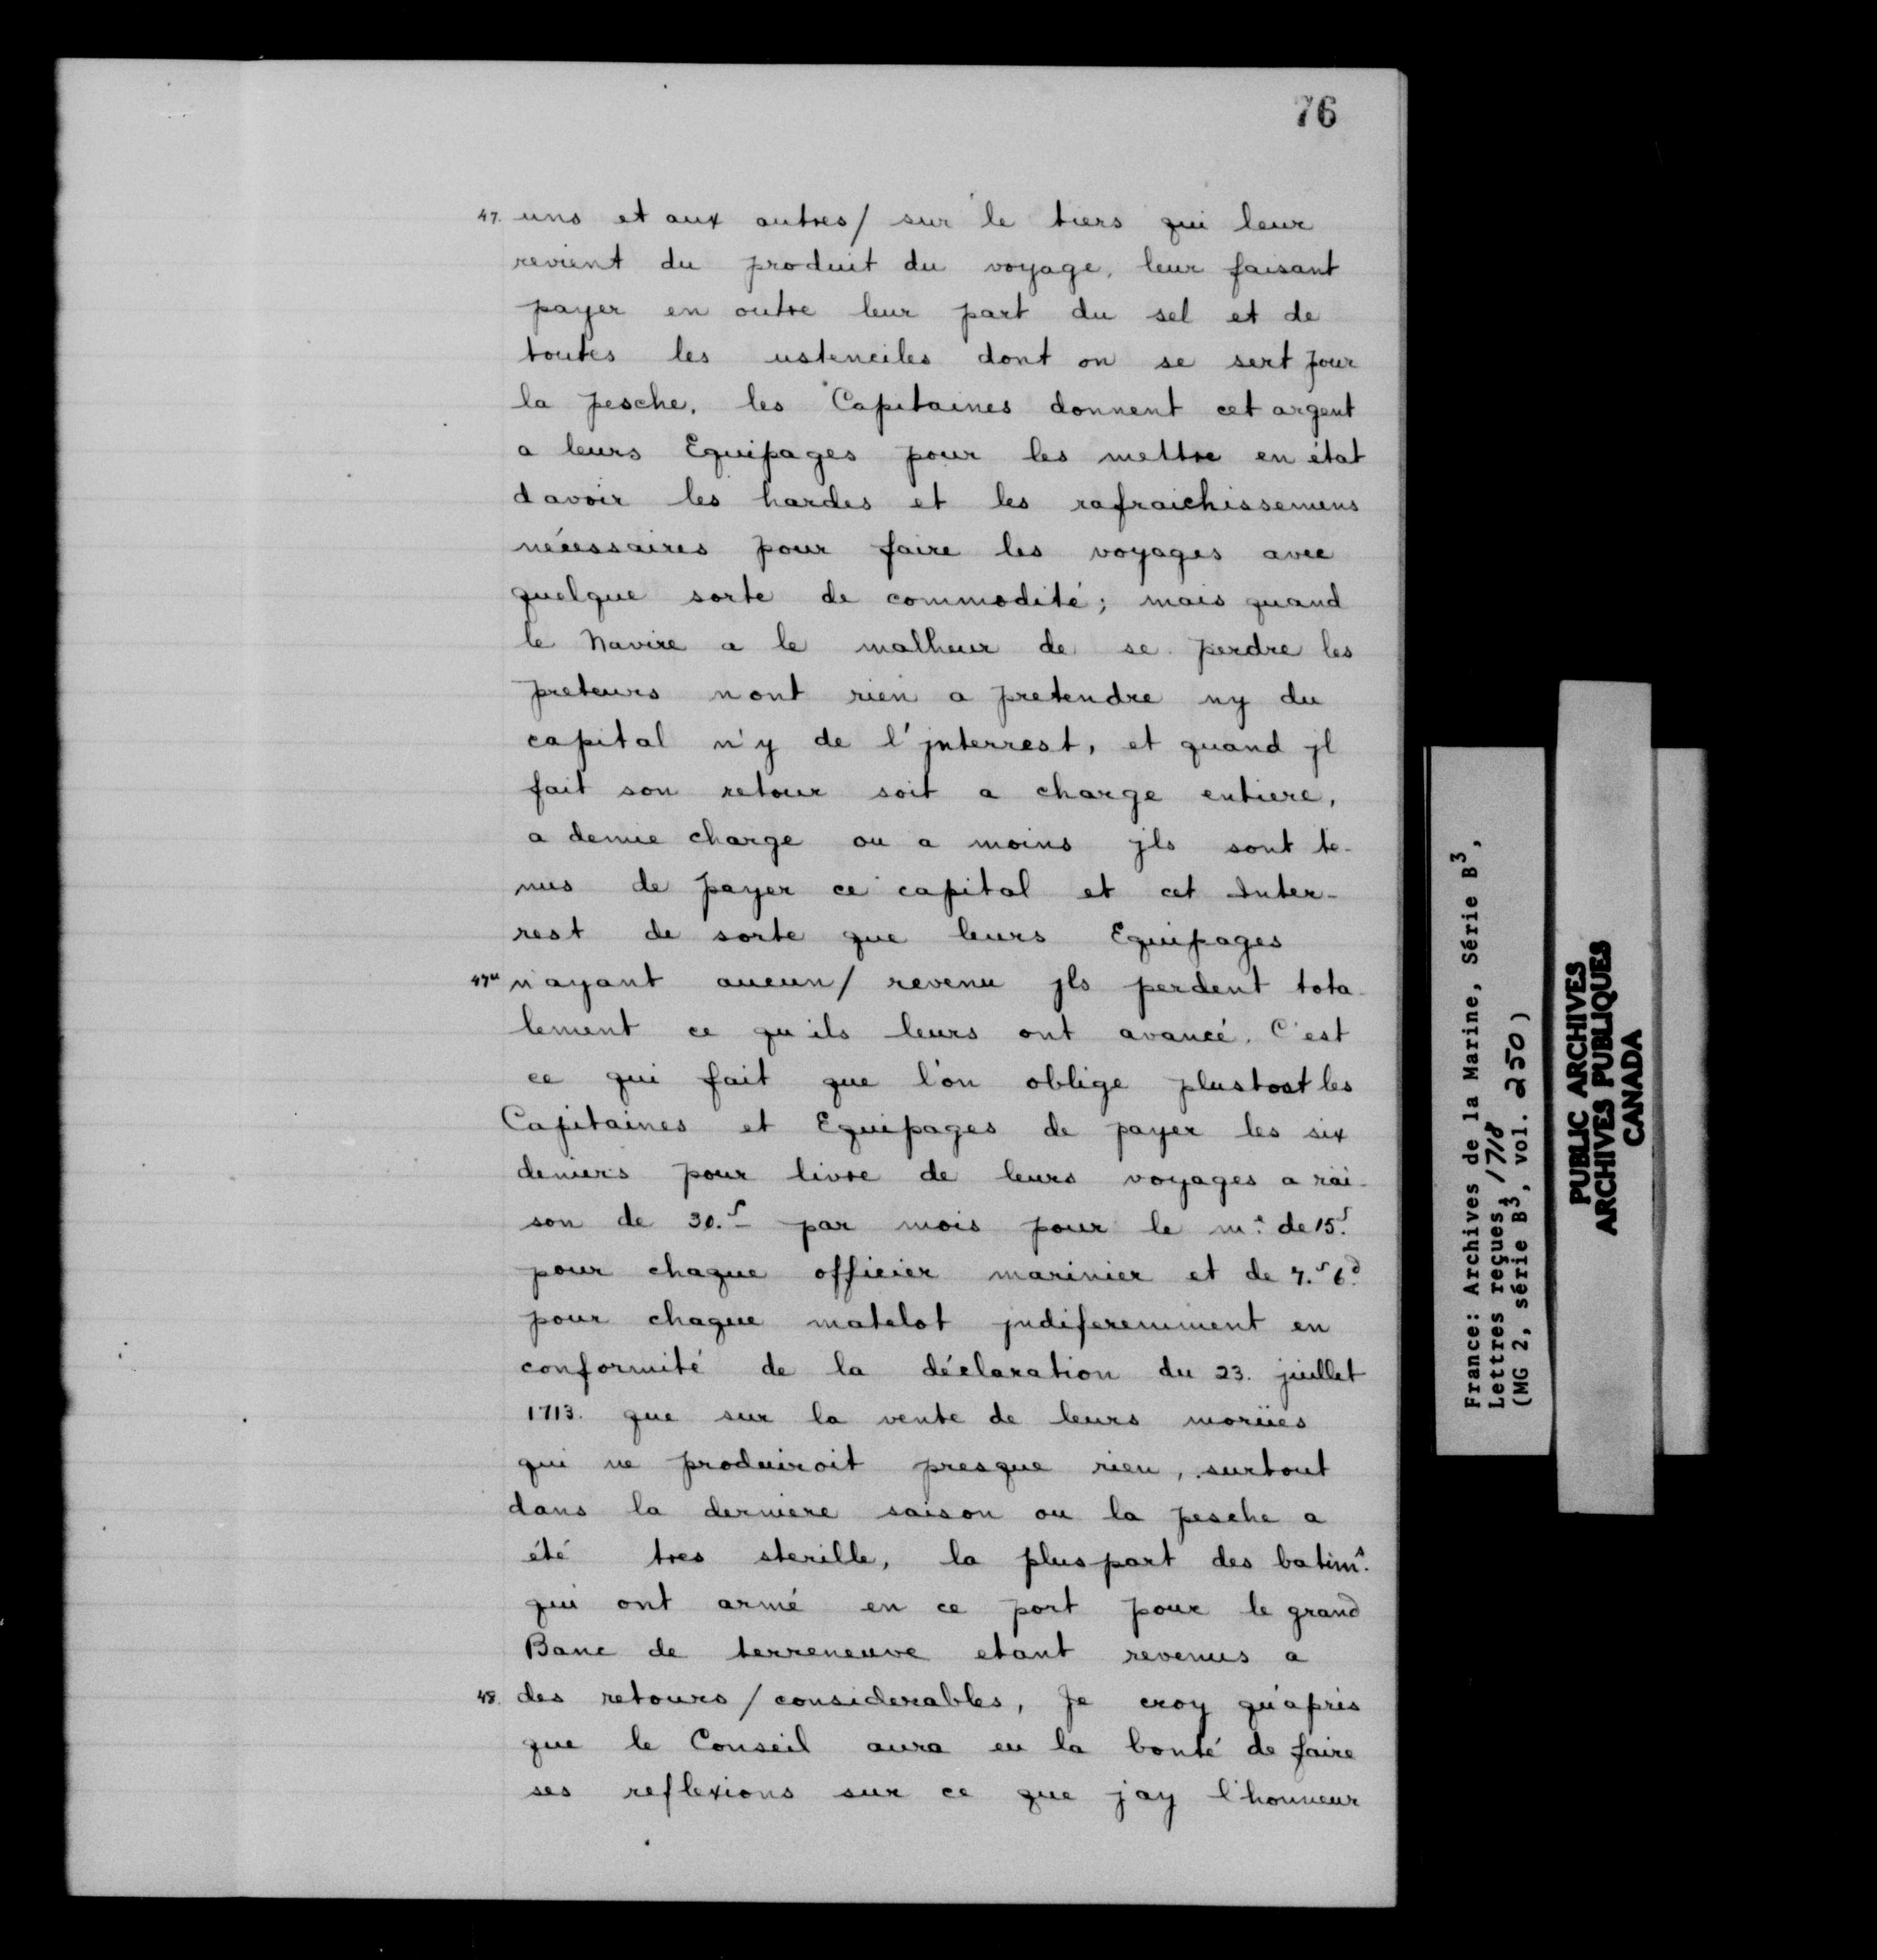 76
47. uns et aux autres/ sur le tiers qui leur
revient du produit du voyage, leur faisant
payer en outre leur part du sel et de
toutes les ustenciles dont on se sert pour
la pesche. les Capitaines donnent cet argent
a leurs Equipages pour les mettre en état
davoir les hardes et les rafraichissemens
nécessaires pour faire les voyages avec
quelque sorte de commodité; mais quand
le Navire a le malheur de se perdre les
preteurs n'ont rien a pretendre ny du
capital n'y de l'jnterrest, et quand jl
fait son retour soit a charge entiere,
a demie charge ou a moins jls sont te-
nus de payer ce capital et cet Inter-
rest de sorte que leurs Equipages
47vo n'ayant aucun/ revenu jls perdent tota-
lement ce qu'ils leurs ont avancé. C'est
ce qui fait que l'on oblige plustost les
Capitaines et Equipages de payer les six
deniers pour livre de leurs voyages a rai-
son de 30.s par mois pour le m.e de 15.s
pour chaque officier marinier et de 7.s 6.d
pour chaque matelot jndiferemment en
conformité de la déclaration du 23. juillet
1713. que sur la vente de leurs moruës
qui ne produiroit presque rien, surtout
dans la derniere saison ou la pesche a
été tres sterille, la pluspart des batim.s
qui ont armé en ce port pour le grand
Banc de terreneuve etant revenus a
48. des retours/ considerables, Je croy qu'aprés
que le Conseil aura eu la bonté de faire
ses reflexions sur ce que j'ay l'honneur
France: Archives de la Marine, Série B3,
Lettres reçues, 1718
(MG 2, série B3, vol. 250)
PUBLIC ARCHIVES
ARCHIVES PUBLIQUES
CANADA